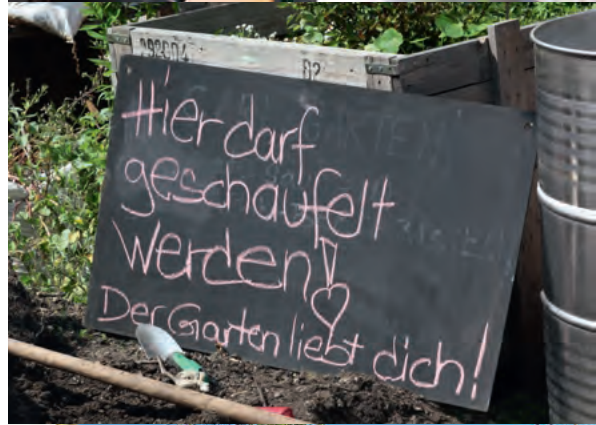 092604
02
Hier darf
geschaufelt
werden!
Der Garten liebt dich!